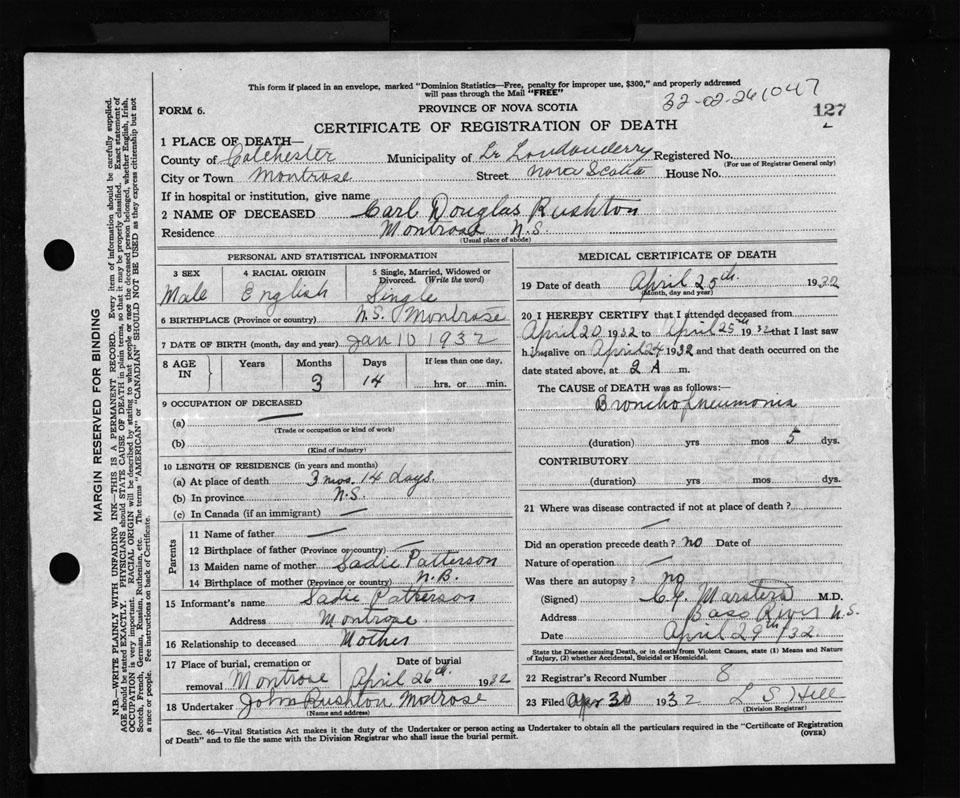 This form if placed in an envelope, marked "Dominion Statistics—Free, penalty for improper use, $300," and properly addressed
will pass through the Mail "FREE"
FORM 6.
PROVINCE OF NOVA SCOTIA
32-02-261047
127
CERTIFICATE OF REGISTRATION OF DEATH
1 PLACE OF DEATH—
County of Colchester Municipality of Lr Londonderry Registered No.
(For use of Registrar General only)
City or Town Montrose Street Nova Scotia House No.
If in hospital or institution, give name
2 NAME OF DECEASED Carl Douglas Rushton
Residence Montrose N.S.
(Usual place of abode)
PERSONAL AND STATISTICAL INFORMATION
3 SEX 4 RACIAL ORIGIN 5 Single, Married, Widowed or
Divorced. (Write the word)
Male English Single
6 BIRTHPLACE (Province or country) N.S. Montrose
7 DATE OF BIRTH (month, day and year) Jan 10 1932
8 AGE IN Years Months Days If less than one day,
3 14 hrs. or min.
9 OCCUPATION OF DECEASED
(a) —
(Trade or occupation or kind of work)
(b)
(Kind of industry)
10 LENGTH OF RESIDENCE (in years and months)
(a) At place of death 3 mos. 14 days.
(b) In province N.S.
(c) In Canada (if an immigrant) —
Parents
11 Name of father —
12 Birthplace of father (Province or country) —
13 Maiden name of mother Sadie Patterson
14 Birthplace of mother (Province or country) N.B.
15 Informant's name Sadie Patterson
Address Montrose
16 Relationship to deceased Mother
17 Place of burial, cremation or
removal Montrose
Date of burial
April 26th 1932
18 Undertaker John Rushton Montrose
(Name and address)
MEDICAL CERTIFICATE OF DEATH
19 Date of death April 25th 1932
(Month, day and year)
20 I HEREBY CERTIFY that I attended deceased from
April 20 1932 to April 25th 1932 that I last saw
him alive on April 24 1932 and that death occurred on the
date stated above, at 2 A m.
The CAUSE OF DEATH was as follows:—
Bronchopneumonia
(duration) yrs mos 5 dys.
CONTRIBUTORY
(duration) yrs mos dys.
21 Where was disease contracted if not at place of death?
—
Did an operation precede death? no Date of
Nature of operation —
Was there an autopsy? no
(Signed) Marsters M.D.
Address Bass River N.S.
Date April 29th /32
State the Disease causing Death, or in death from Violent Causes, state (1) Means and Nature
of Injury, (2) whether Accidental, Suicidal or Homicidal.
22 Registrar's Record Number 8
23 Filed Apr 30 1932 L S Hill
(Division Registrar)
Sec. 46—Vital Statistics Act makes it the duty of the Undertaker or person acting as Undertaker to obtain all the particulars required in the "Certificate of Registration
of Death" and to file the same with the Division Registrar who shall issue the burial permit.
(OVER)
MARGIN RESERVED FOR BINDING
N.B.—WRITE PLAINLY WITH UNFADING INK—THIS IS A PERMANENT RECORD. Every item of information should be carefully supplied.
AGE should be stated EXACTLY. PHYSICIANS should STATE CAUSE OF DEATH in plain terms, so that it may be properly classified. Exact statement of
OCCUPATION is very important. RACIAL ORIGIN will be described by stating to what people or race the deceased person belonged, whether English, Irish,
Scotch, French, German, Russian, Ruthenian, etc. The terms "AMERICAN" or "CANADIAN" SHOULD NOT BE USED as they express citizenship but not
a race or people. See instructions on back of Certificate.